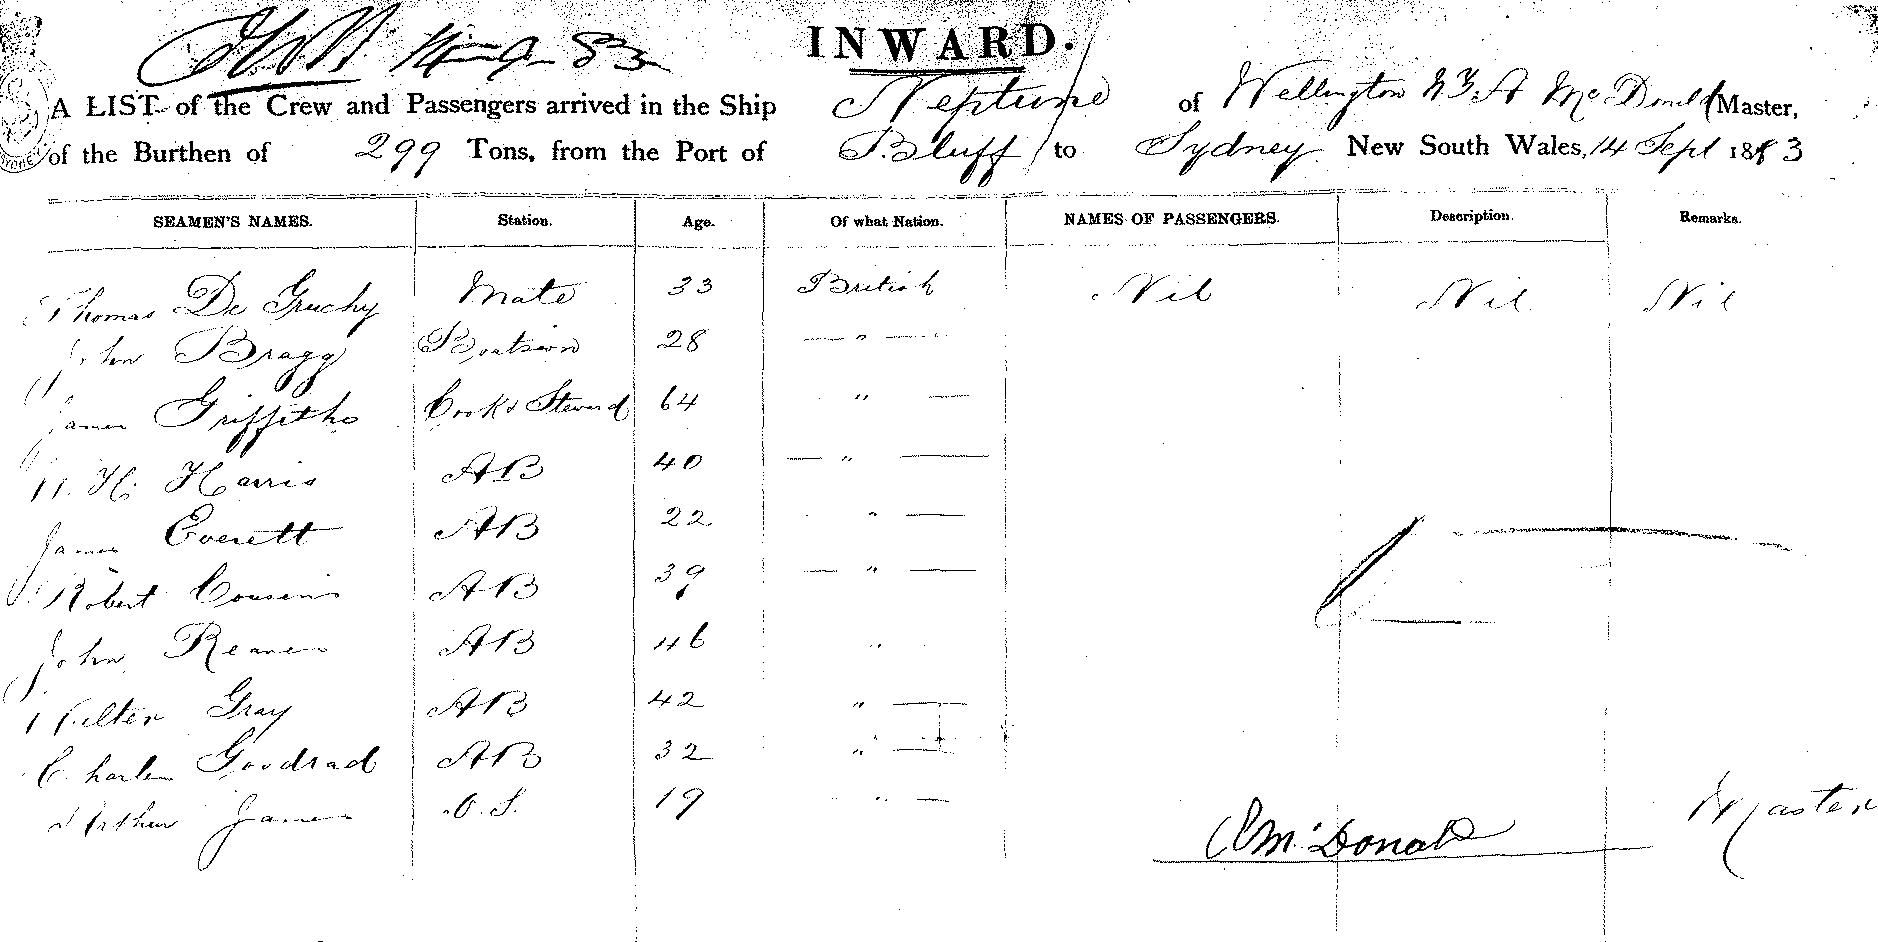 14-9-83
INWARD.
A LIST of the Crew and Passengers arrived in the Ship Neptune of Wellington NZ A McDonald Master,
of the Burthen of 299 Tons, from the Port of Bluff to Sydney New South Wales, 14 Sept 1883
SEAMEN'S NAMES. Station. Age. Of what Nation. NAMES OF PASSENGERS. Description. Remarks.
Thomas De Gruchy Mate 33 British Nil Nil Nil
John Bragg Boatswn 28 — " —
James Griffiths Cook & Steward 64 " —
H. Harris AB 40 — " —
James Everett AB 22 " —
Robert Cousins AB 39 — " —
John AB 46 "
Walter Gray AB 42 " —
Charles AB 32 " —
Arthur James O.S. 19 " —
McDonald Master